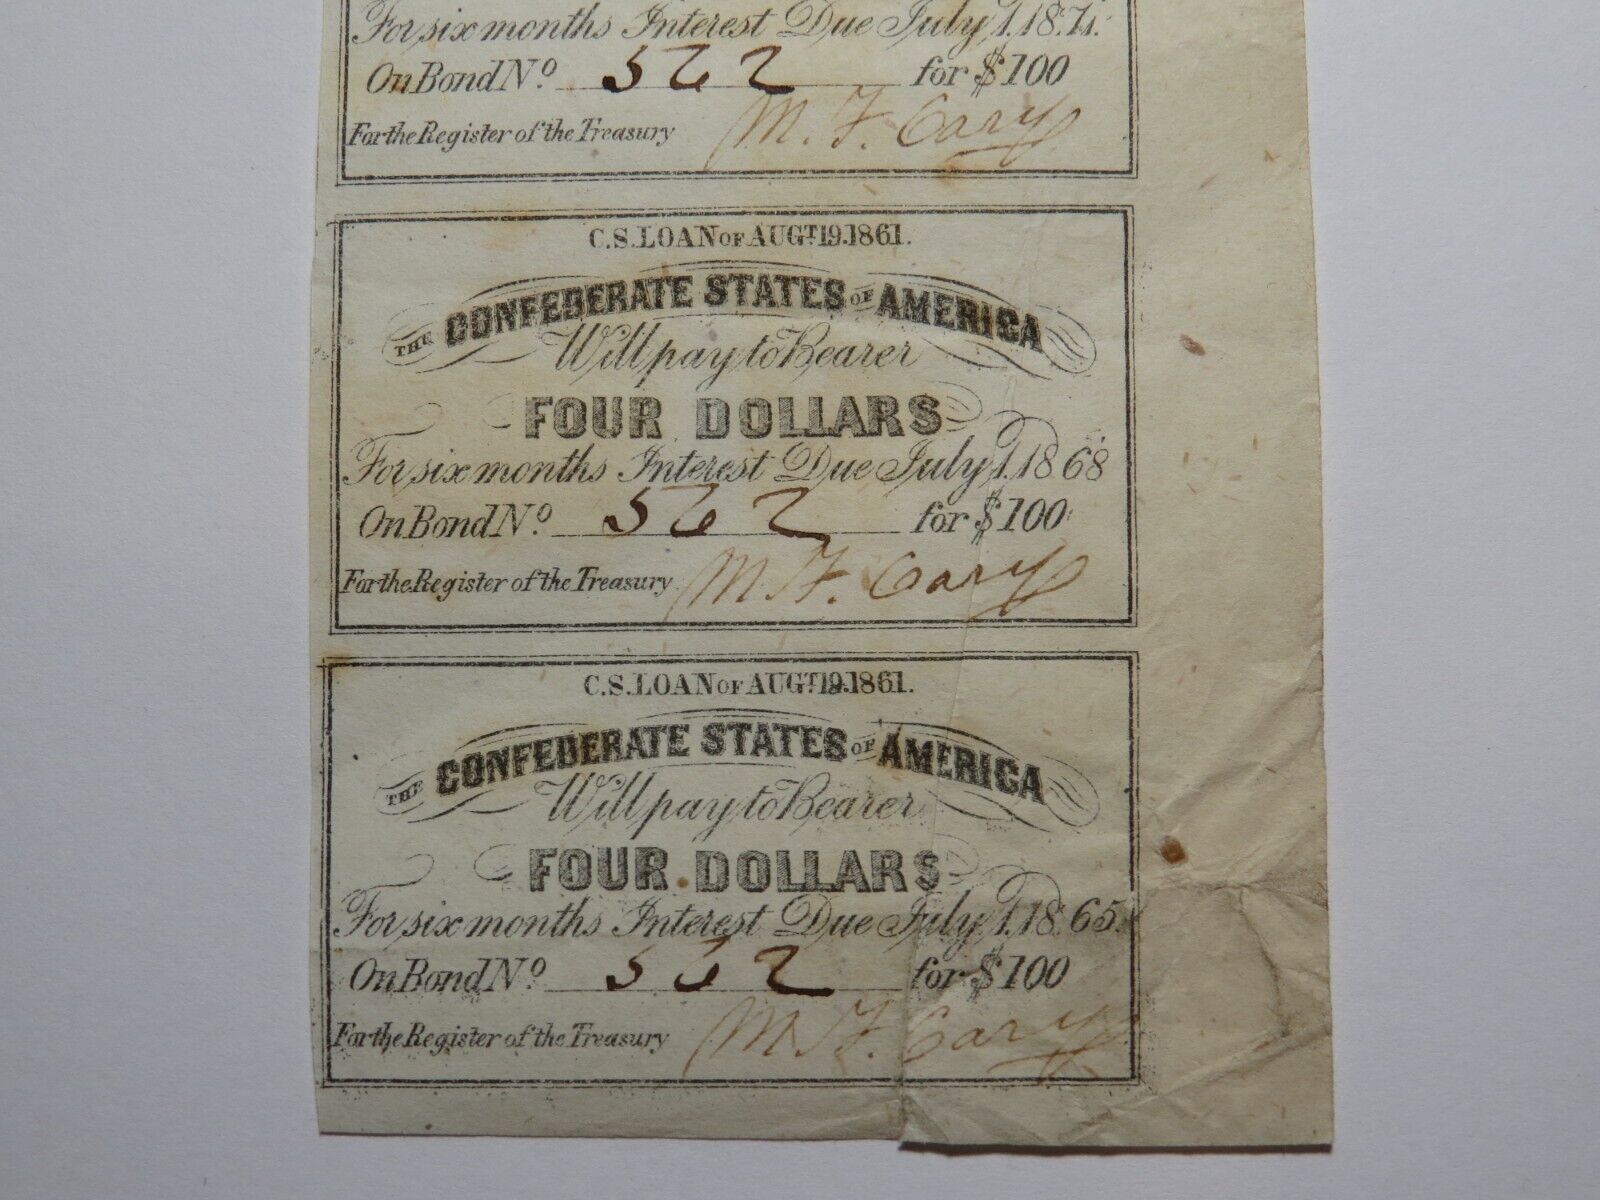 For six months Interest Due July 1. 1871.
On Bond No. 562 for $100
For the Register of the Treasury M. F. Cary
C.S. LOAN OF AUGT. 19. 1861.
THE CONFEDERATE STATES OF AMERICA
Will pay to Bearer
FOUR DOLLARS
For six months Interest Due July 1. 1868
On Bond No. 562 for $100
For the Register of the Treasury M. F. Cary
C.S. LOAN OF AUGT. 19. 1861.
THE CONFEDERATE STATES OF AMERICA
Will pay to Bearer
FOUR DOLLARS
For six months Interest Due July 1. 1865
On Bond No. 562 for $100
For the Register of the Treasury M. F. Cary